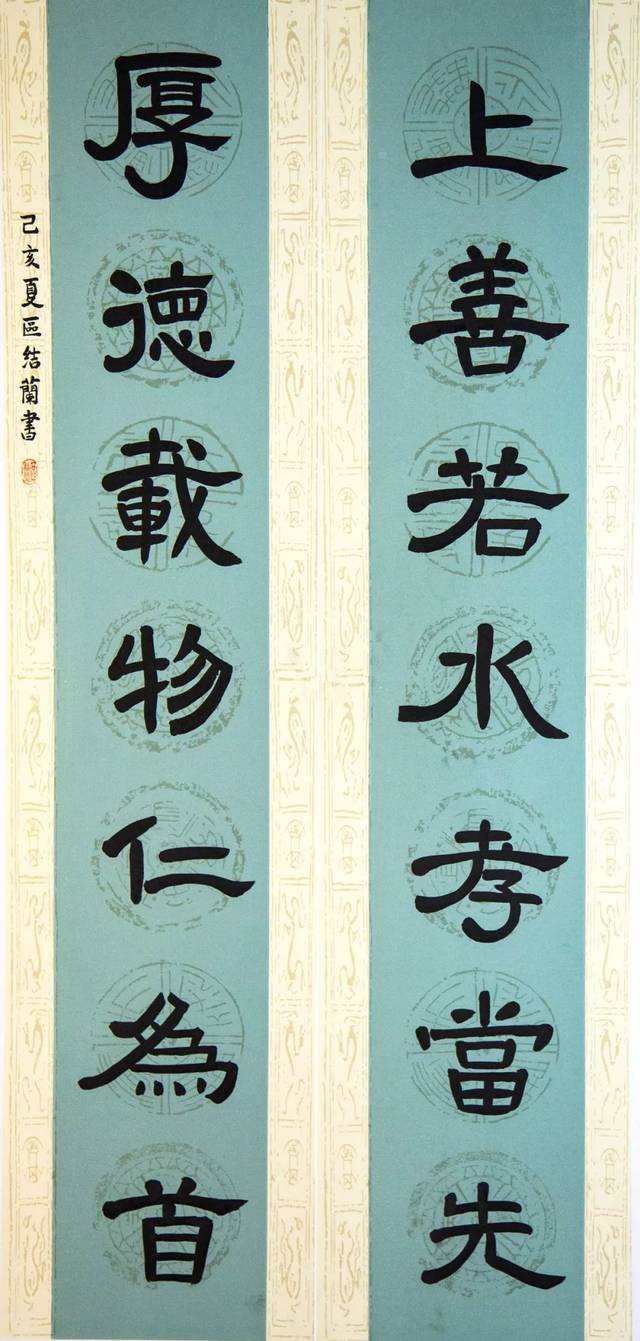 上善若水孝當先
厚德載物仁為首
己亥夏區結蘭書